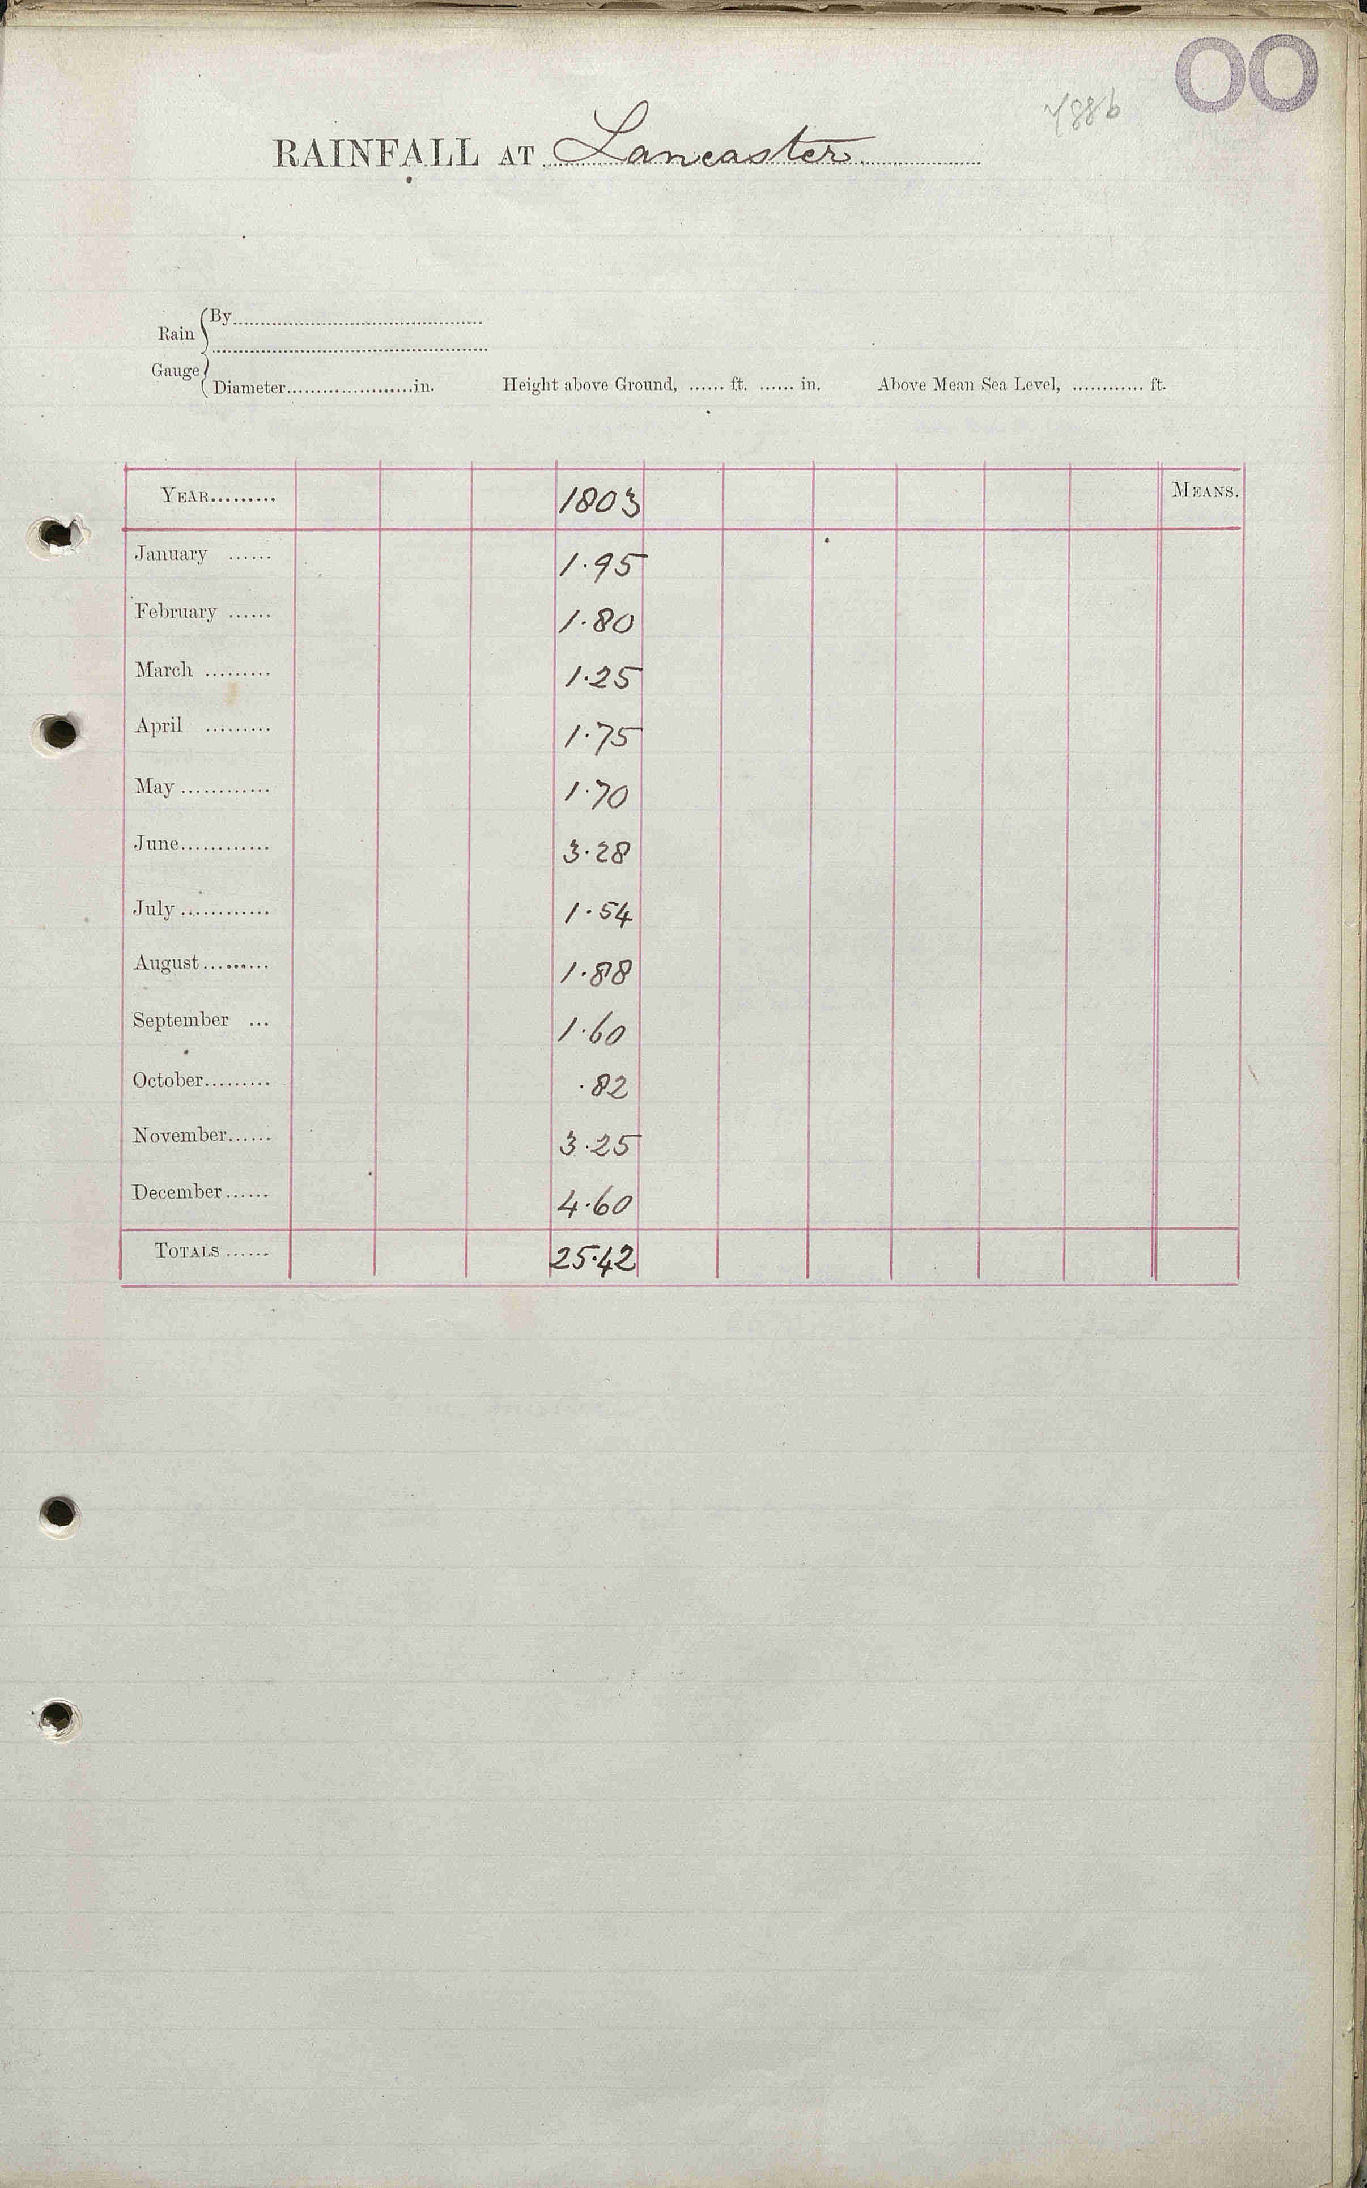 OO
RAINFALL AT Lancaster
Rain Gauge
By
Diameter in. Height above Ground, ft. in. Above Mean Sea Level, ft.
YEAR 1803 MEANS.
January 1.95
February 1.80
March 1.25
April 1.75
May 1.70
June 3.28
July 1.54
August 1.88
September 1.60
October .82
November 3.25
December 4.60
TOTALS 25.42